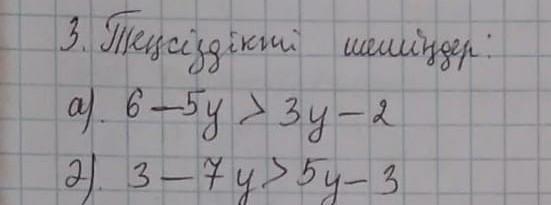 3. Теңсіздікті шешіңдер:
а). 6 - 5y > 3y - 2
ә). 3 - 7y > 5y - 3